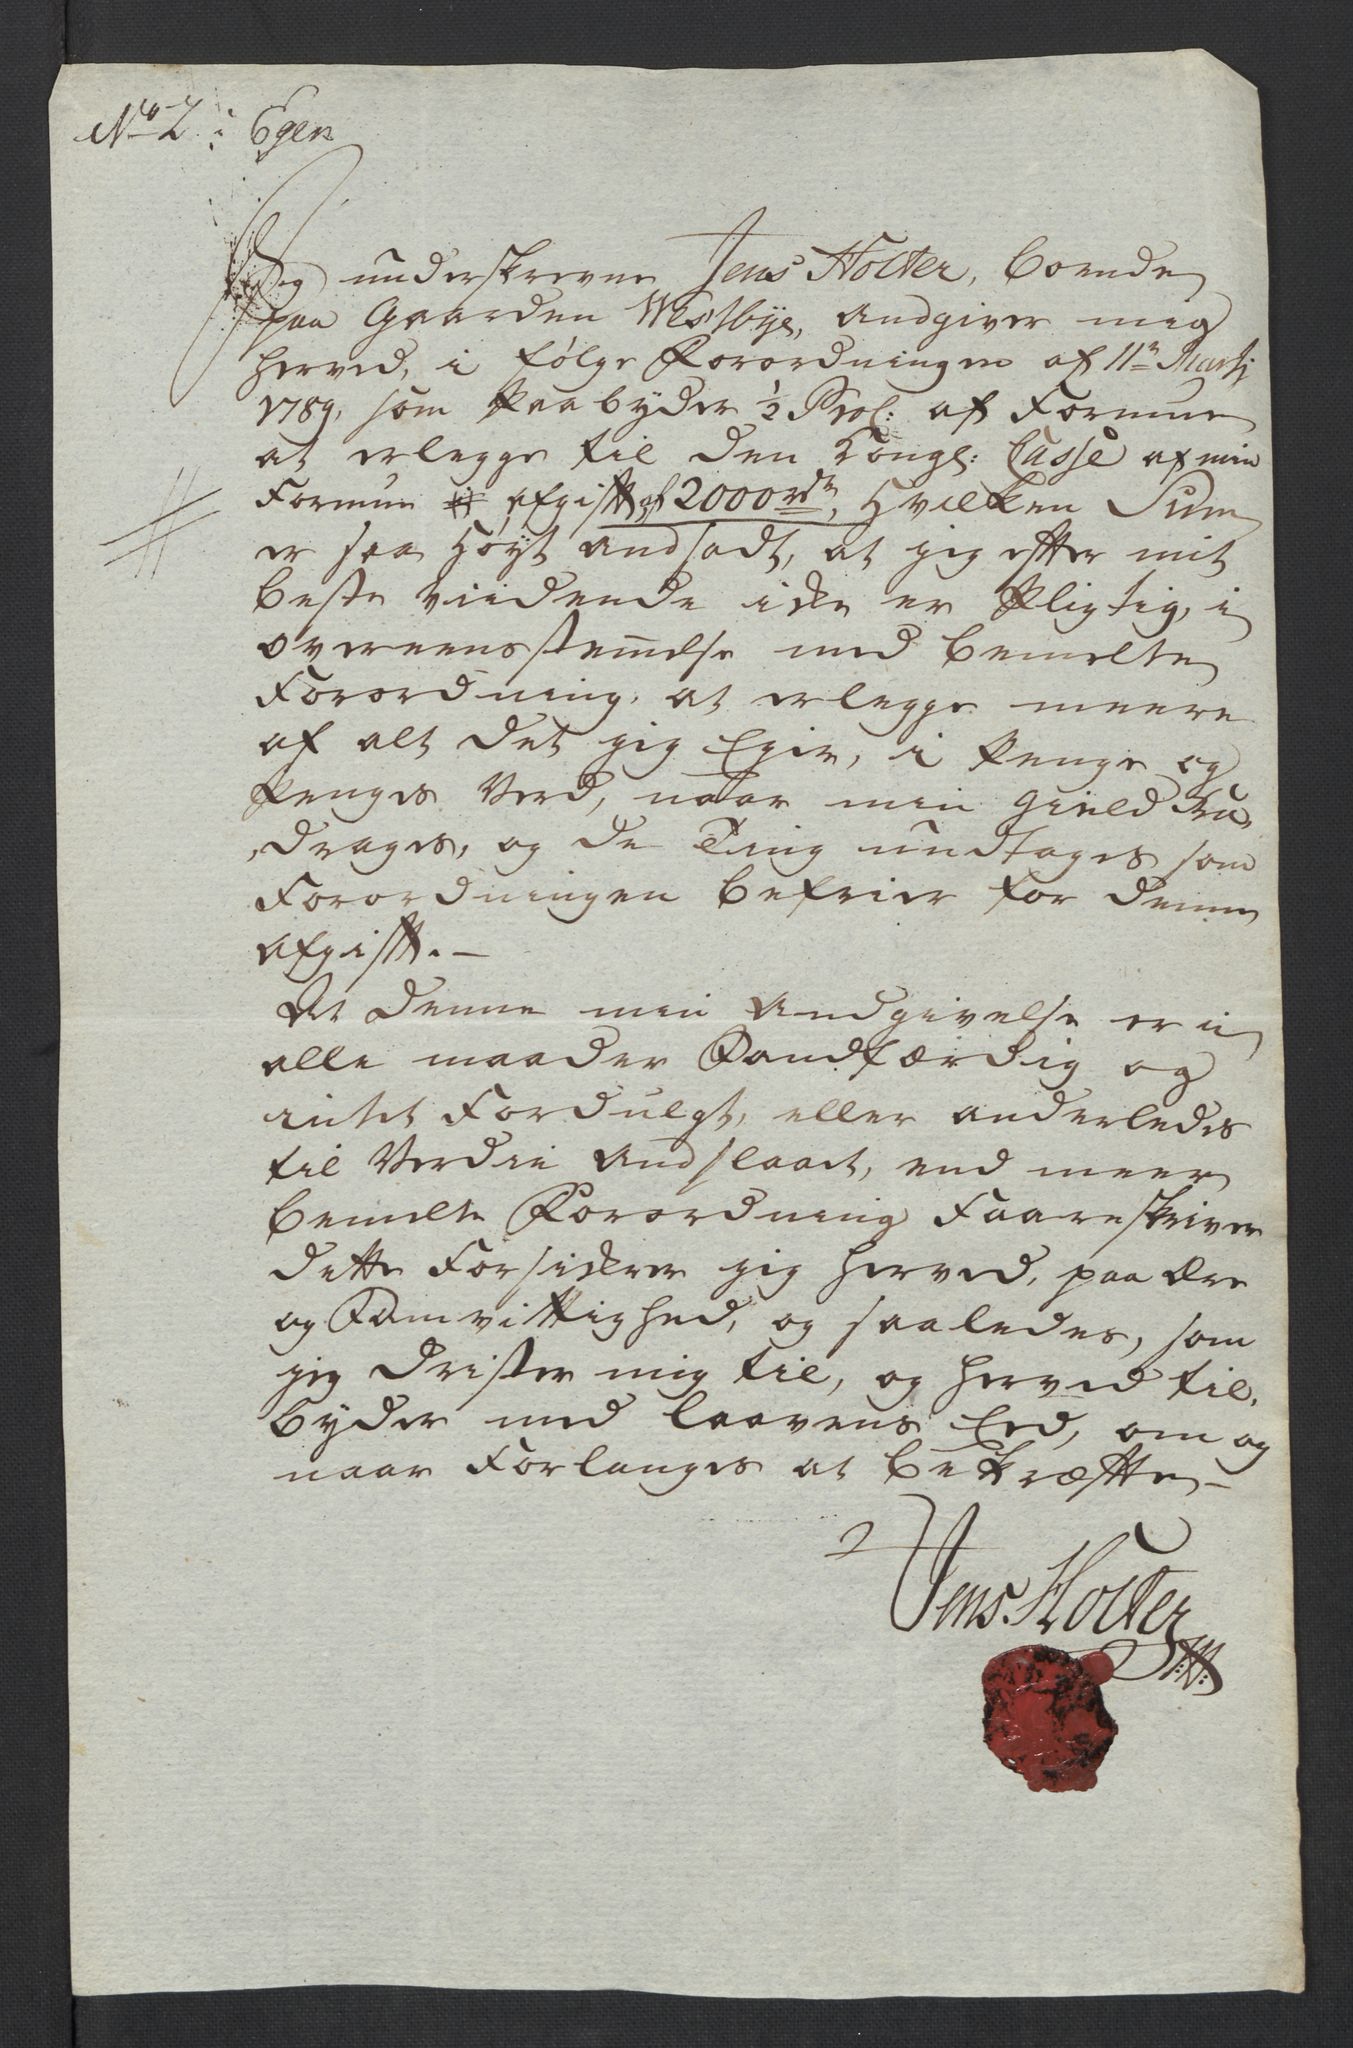 No 2 i Egen
Jeg underskrevne Jens Holter, boende
paa Gaarden Westbye, andgiver mig
herved, i følge Forordningen af 11te Martj
1789, som paabyder 1/2 Proc: af Formue
at erlegge til den Kongl: Casse af min
Formue # afgift af 2000 rdr, hvilken Sum
er saa høyt andsadt, at jeg efter mit
beste viidende icke er pligtig, i
overeensstem̅else med bemelte
Forordning, at erlegge meere
af alt det jeg Ejer, i Penge og
Penges Verd, naar min Gield fra,
,drages, og de Ting undtages som
Forordningen befrier for denne
afgift. —
At denne min Andgivelse er i
alle maader Sandfærdig og
intet Fordulgt, eller anderledes
til Verdie andslaaet, end meer
bemelte Forordning Faareskriver
dette Forsickrer jeg herved, paa Ære
og Samvittighed, og saaledes, som
jeg drister mig til, og herved til,
byder med laavens Eed, om og
naar Forlanges at bekræfte —
Jens Holter